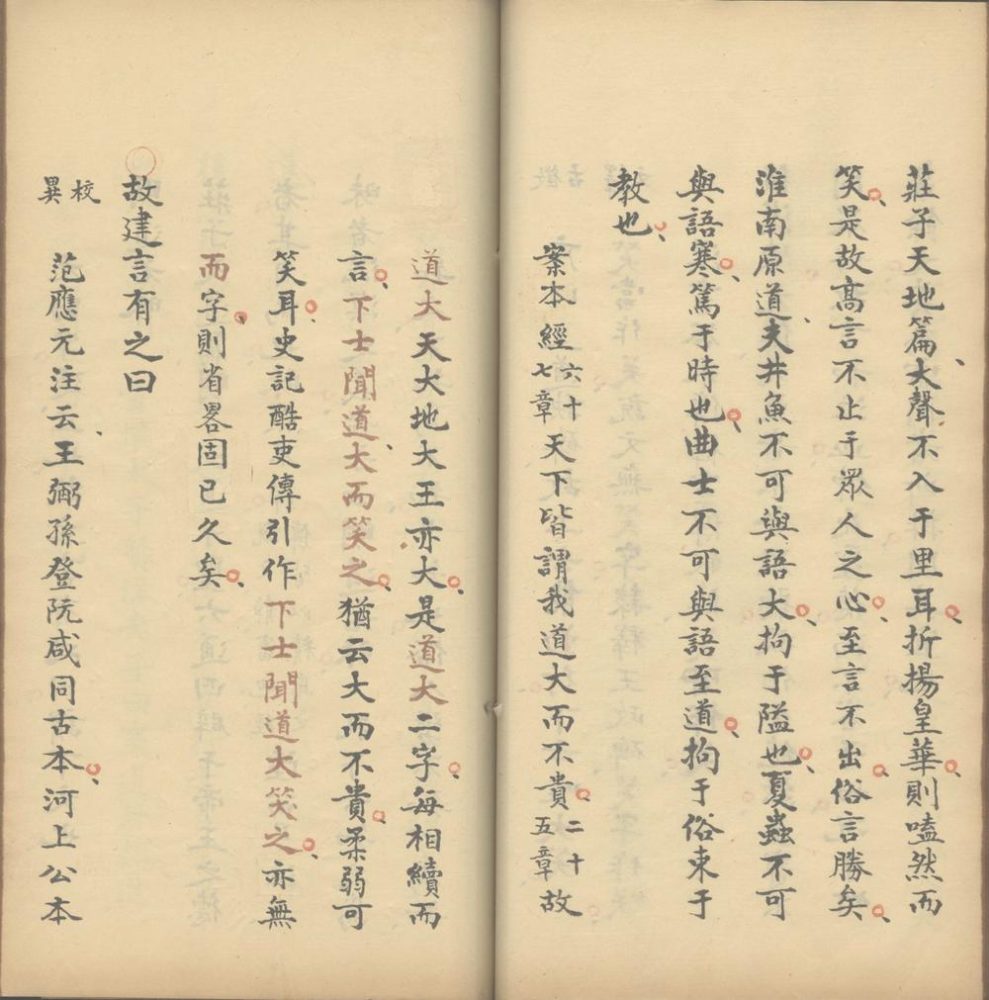 莊子天地篇、大聲不入于里耳、折揚皇華、則嗑然而
笑、是故高言不止于眾人之心、至言不出、俗言勝矣、
淮南原道、夫井魚不可與語大、拘于隘也、夏蟲不可
與語寒、篤于時也、曲士不可與語至道、拘于俗束于
教也、
案本經六十七章天下皆謂我道大而不貴、二十五章故
道大天大地大王亦大、是道大二字、每相續而
言、下士聞道大而笑之、猶云大而不貴、柔弱可
笑耳、史記酷吏傳引作下士聞道大笑之、亦無
而字、則省畧固已久矣、
○故建言有之曰
校異
范應元注云、王弼孫登阮咸同古本、河上公本